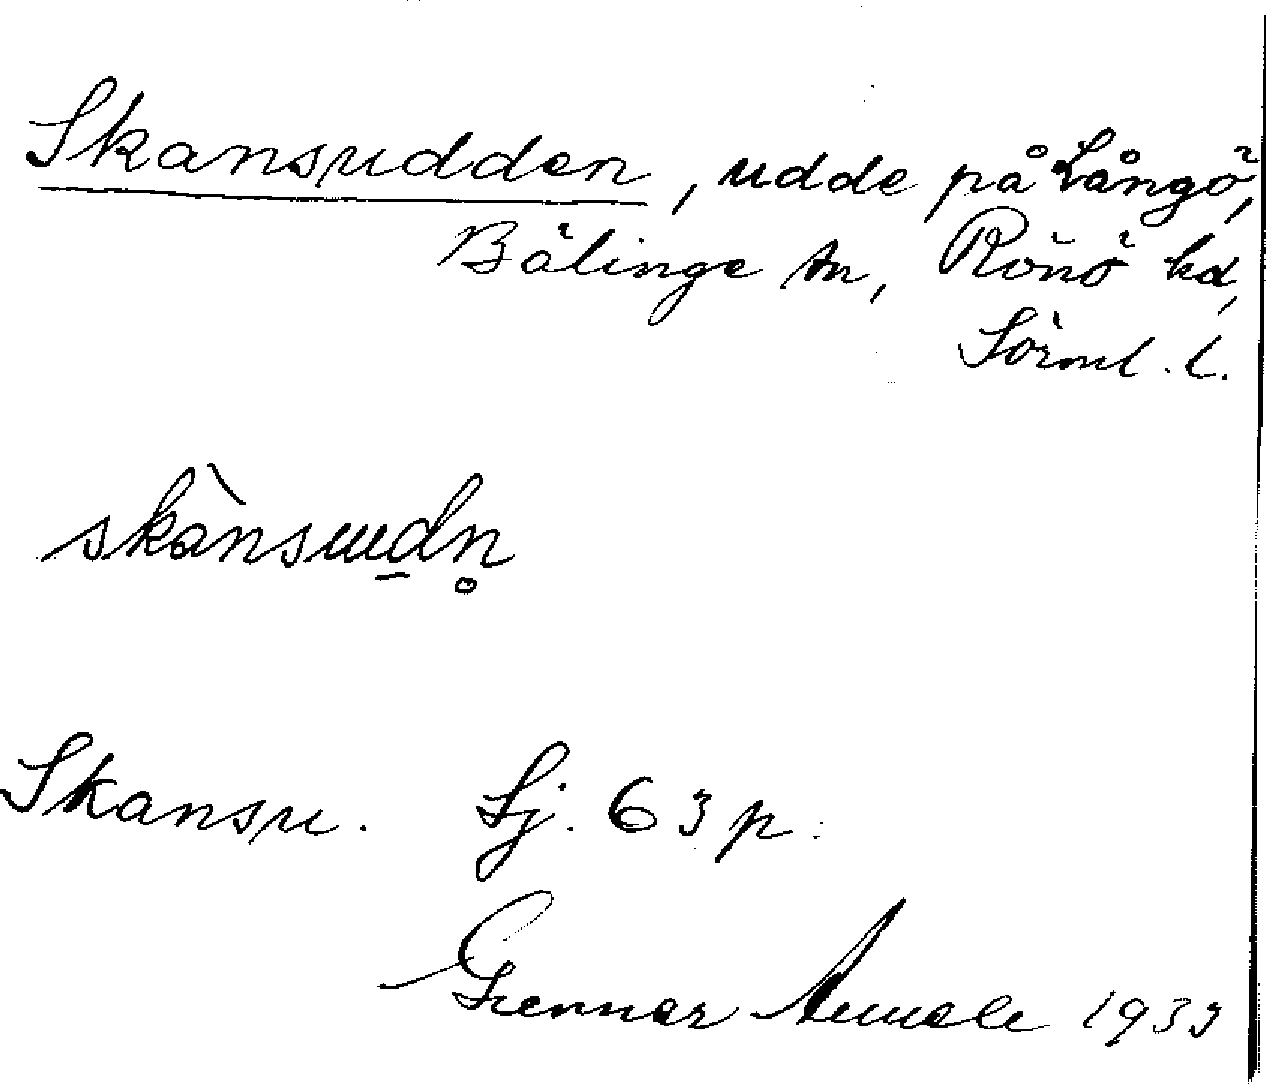 Skansudden, udde på Långö,
Bälinge sn, Rönö hd,
Sörml. l.
skànsudn̥
Skansu. Sj. 63 p.
Gunnar 1933